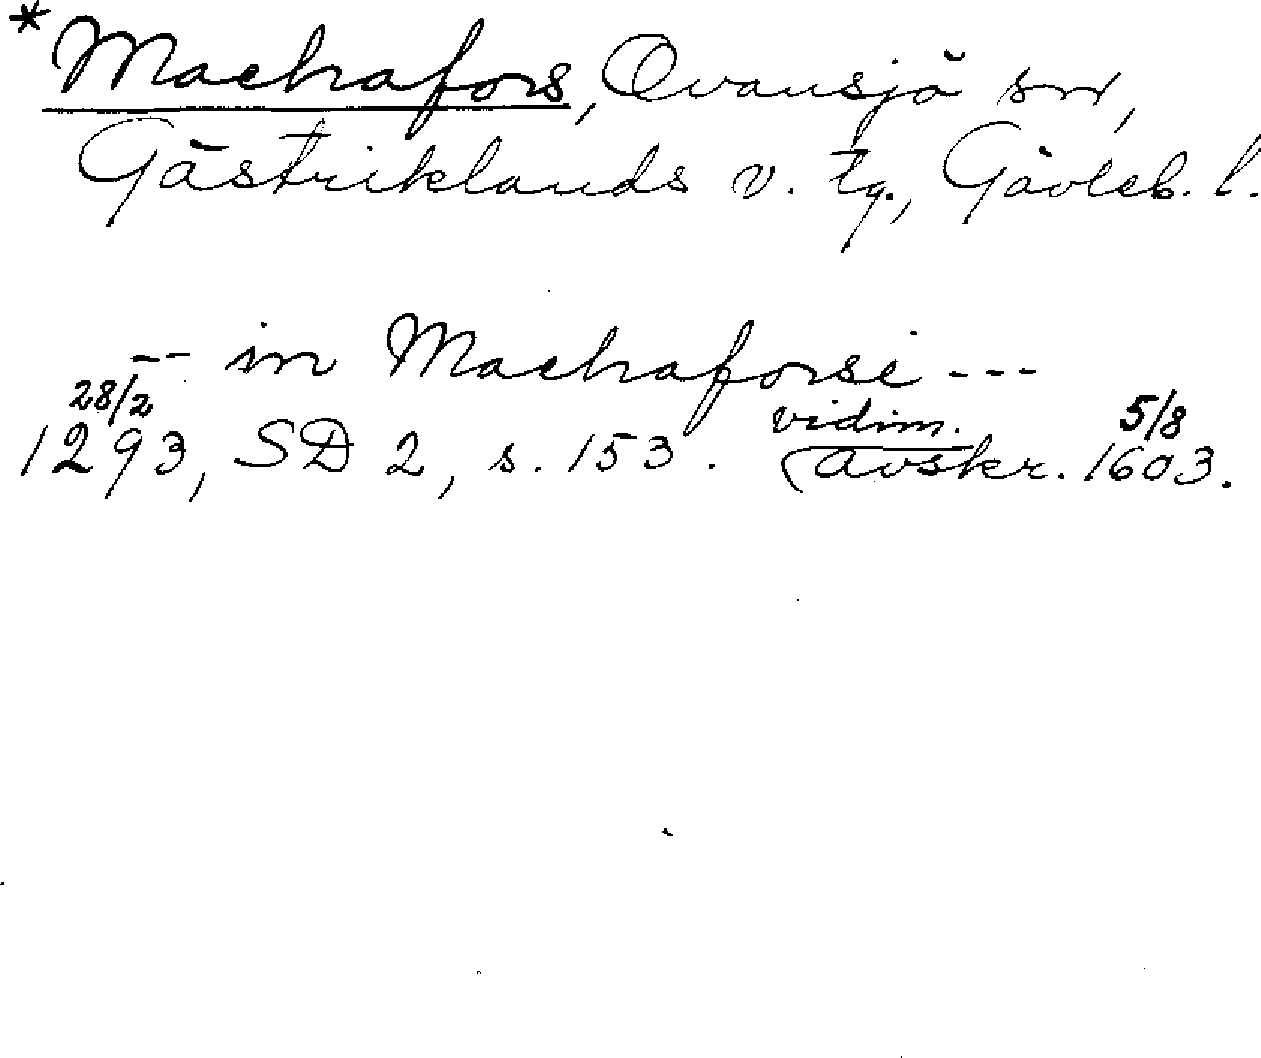 *Machafors, Ovansjö sn,
Gästriklands v. tg., Gävleb. l.
-- in Machaforse ---
28/2 vidim. 5/8
1293, SD 2, s. 153. (avskr. 1603.